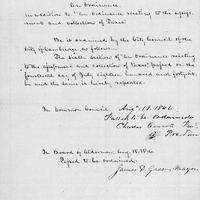 An Ordinance
In addition to "An Ordinance relating to the assess-
ment and collection of Taxes"
Be it ordained by the City Council of the
City of Cambridge, as follows.
The sixth section of "An Ordinance relating
to the assessment and collection of Taxes" passed on the
fourteenth day of July eighteen hundred and forty six,
be and the same is hereby repealed.
In Common Council, Aug. 18. 1846
Passed to be ordained
Charles
Pro. Tem
In Board of Aldermen Aug. 18. 1846
Passed to be Ordained.
James D. Green, Mayor.